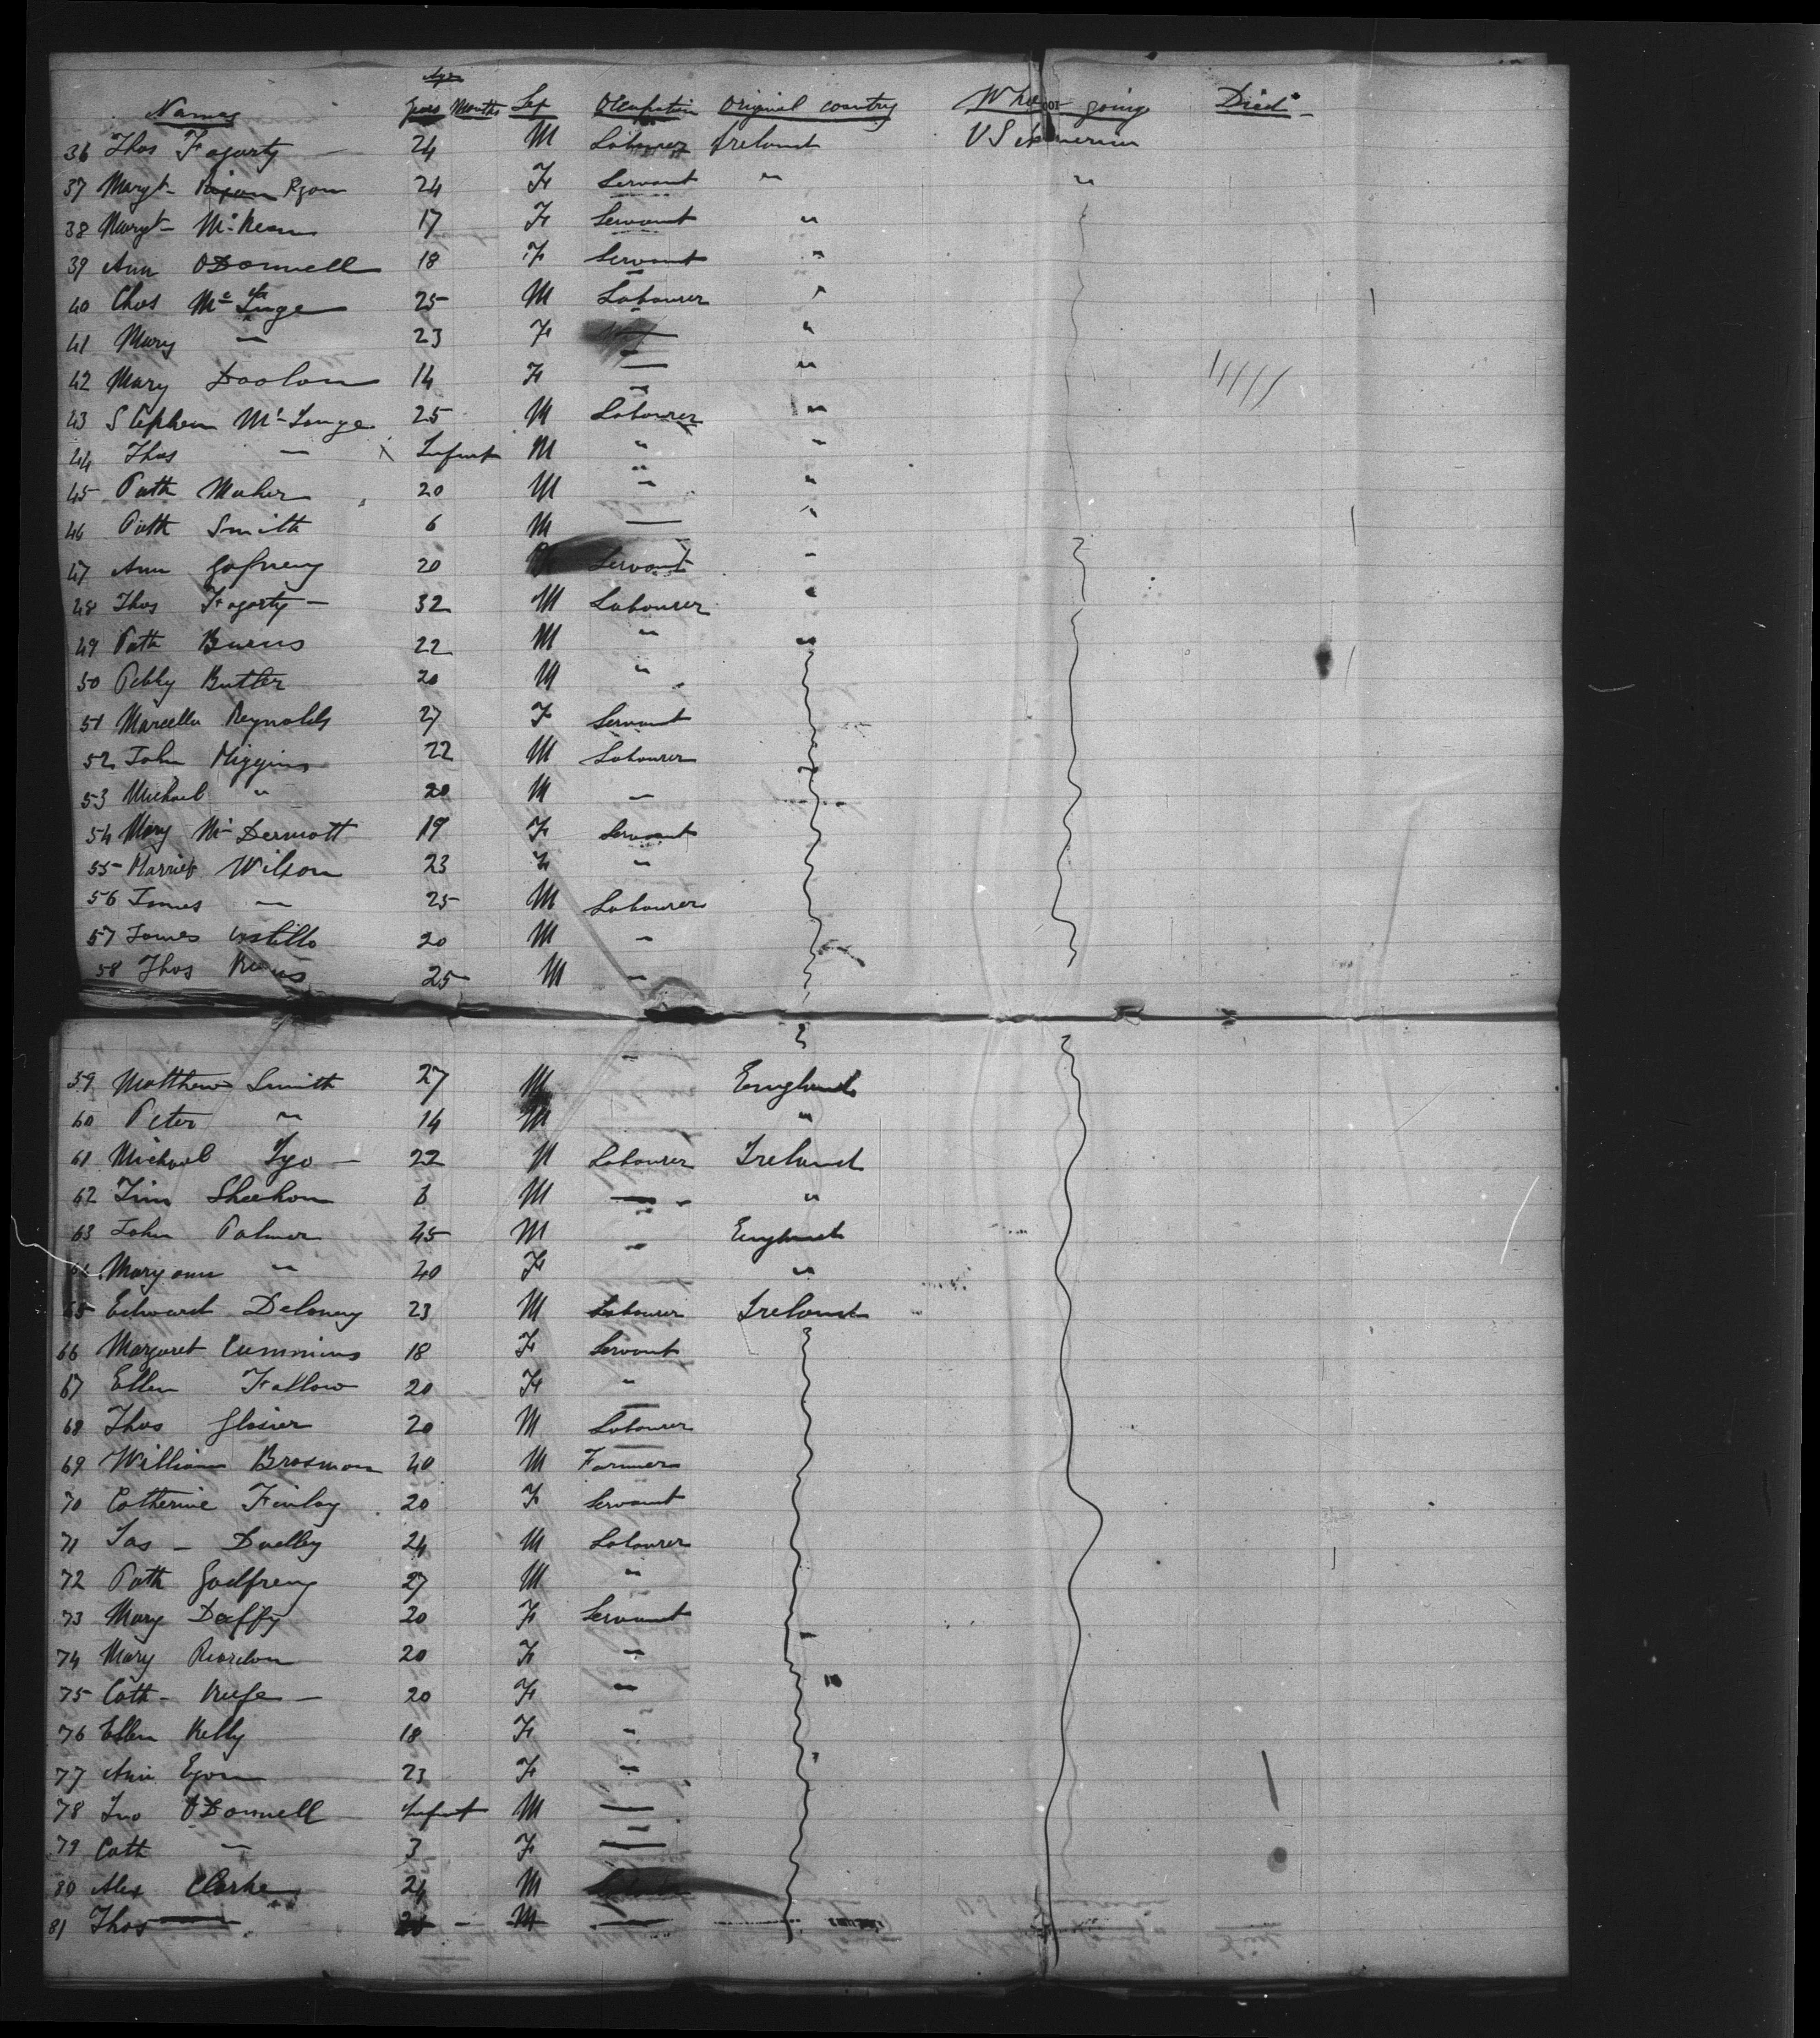 Age
Names Years Months Sex Occupation Original country Where going Died
36 Thos Fogarty — 24 M Labourer Ireland US America
37 Margt Ryan 24 F Servant " "
38 Margt 17 F Servant "
39 Ann ODonnell 18 F Servant "
40 Chas 25 M Labourer "
41 Mary — 23 F "
42 Mary Doolan 14 F — "
43 Stephen 25 M Labourer "
44 Thos — Infant M " "
45 Patk Maher 20 M " "
46 Patk Smith 6 M — "
47 Ann 20 Servant "
48 Thos Fogarty — 32 M Labourer "
49 Patk Burns 22 M " "
50 Butler 20 M "
51 Marcella Reynolds 27 F Servant
52 John Higgins 22 M Labourer
53 Michael " 20 M "
54 Mary McDermott 19 F Servant
55 Harriet Wilson 23 F "
56 James — 25 M Labourer
57 James Costillo 20 M "
58 Thos 25 M "
59 Matthew Smith 27 M " England
60 Peter " 14 M "
61 Michael 22 M Labourer Ireland
62 Tim Sheehan 6 M — "
63 John Palmer 45 M " England
64 Mary ann " 40 F "
65 Edward Delaney 23 M Labourer Ireland
66 Margaret Cummins 18 F Servant
67 Ellen Fallow 20 F "
68 Thos Glosier 20 M Labourer
69 William Brosman 40 M Farmer
70 Catherine Finlay 20 F Servant
71 Jas — Duelley 24 M Labourer
72 Patk Godfrey 27 M "
73 Mary Duffy 20 F Servant
74 Mary Reardon 20 F "
75 Cath — 20 F "
76 Ellen Kelly 18 F "
77 Ann Egan 23 F "
78 Jno ODonnell Infant M —
79 Cath — 3 F —
80 Alex Clarke 24 M
81 Thos M —